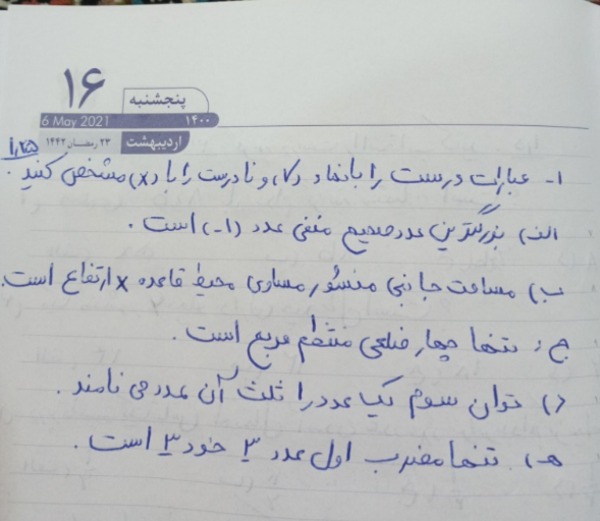 ۱۶
پنجشنبه
6 May 2021
۱۴۰۰
۲۳ رمضان ۱۴۴۲
اردیبهشت
۱,۲۵
۱- عبارات درست را با نماد (✓) و نادرست را با (×) مشخص کنید.
الف) بزرگترین عدد صحیح منفی عدد (۱-) است.
ب) مساحت جانبی منشور مساوی محیط قاعده × ارتفاع است.
ج) تنها چهار ضلعی منتظم مربع است.
د) توان سوم یک عدد را ثلث آن عدد می نامند.
هـ) تنها مضرب اول عدد ۳ خود ۳ است.